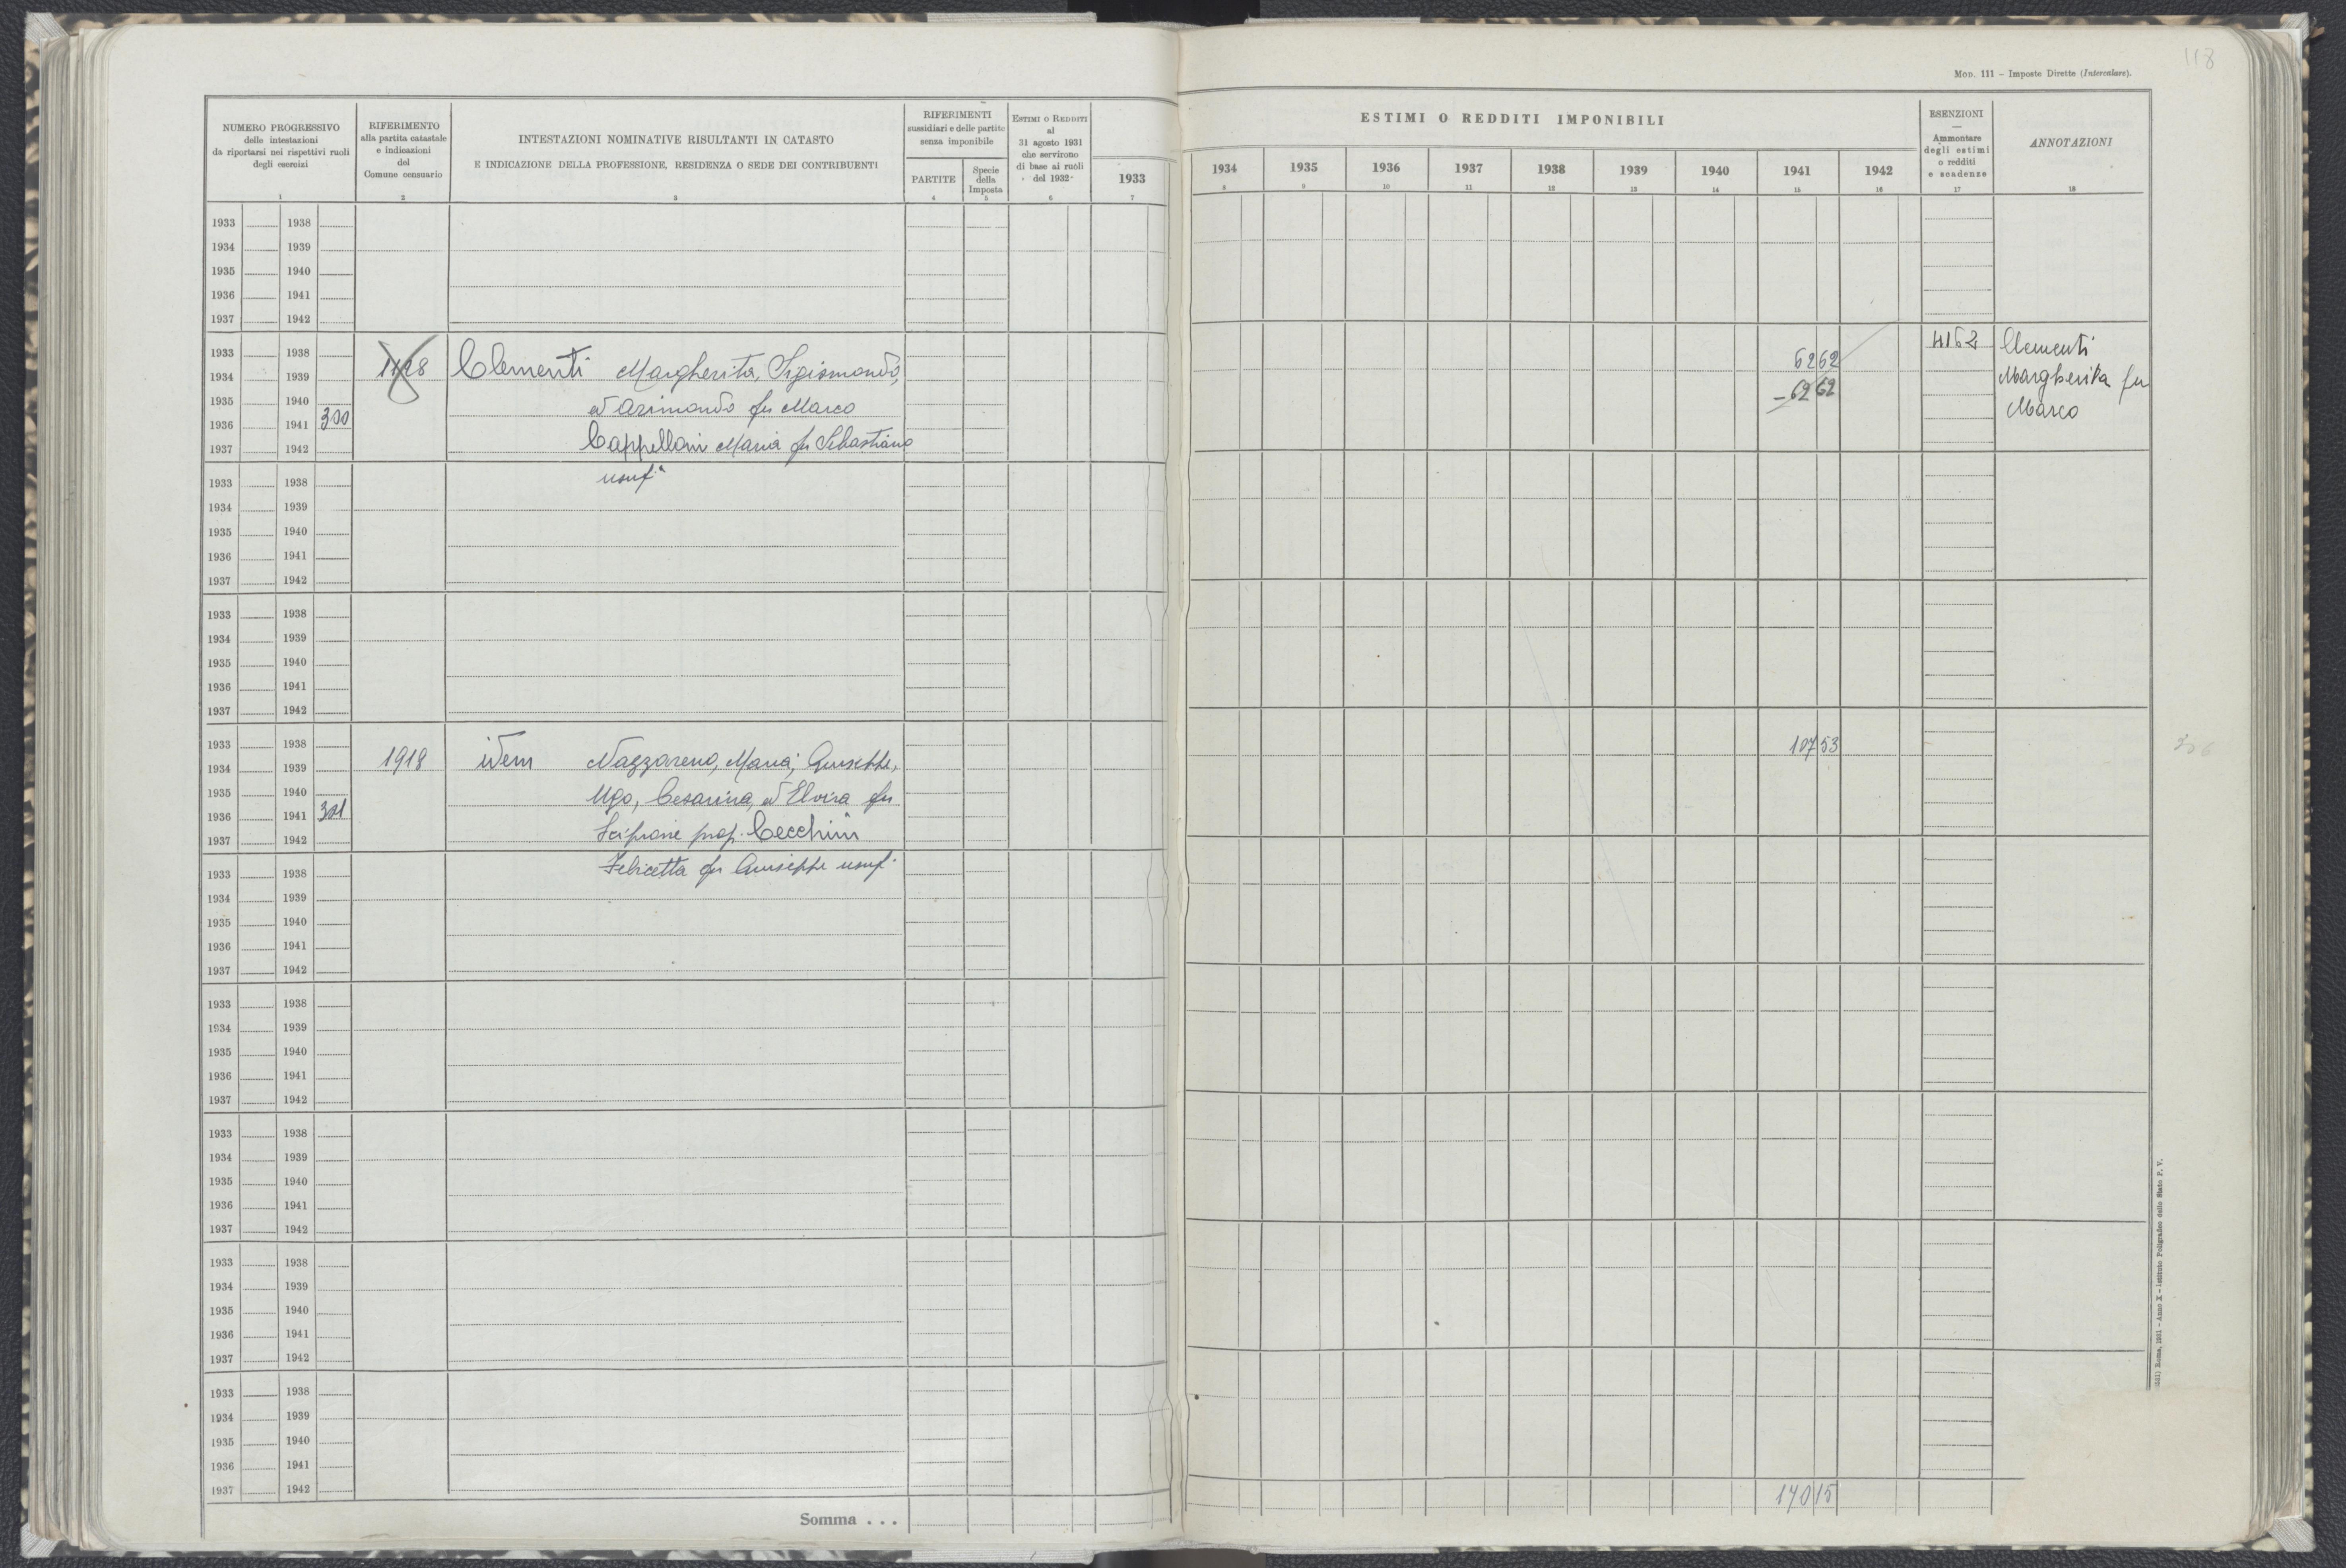 118
Mod. 111 – Imposte Dirette (Intercalare).
NUMERO PROGRESSIVO
delle intestazioni
da riportarsi nei rispettivi ruoli
degli esercizi
RIFERIMENTO
alla partita catastale
e indicazioni
del
Comune censuario
INTESTAZIONI NOMINATIVE RISULTANTI IN CATASTO
E INDICAZIONE DELLA PROFESSIONE, RESIDENZA O SEDE DEI CONTRIBUENTI
RIFERIMENTI
sussidiari e delle partite
senza imponibile
PARTITE
Specie
della
Imposta
Estimi o Redditi
al
31 agosto 1931
che servirono
di base ai ruoli
del 1932
ESTIMI O REDDITI IMPONIBILI
1933 1934 1935 1936 1937 1938 1939 1940 1941 1942
ESENZIONI
—
Ammontare
degli estimi
o redditi
e scadenze
ANNOTAZIONI
1 2 3 4 5 6 7 8 9 10 11 12 13 14 15 16 17 18
1933 1938
1934 1939
1935 1940
1936 1941
1937 1942
1933 1938 4152 Clementi
1934 1939 1128 Clementi Margherita, Sigismondo, 6262 Margherita fu
1935 1940 ed Arimondo fu Marco – 6262 Marco
1936 1941 300
1937 1942 Cappelloni Maria fu Sebastiano
usuf.a
1933 1938
1934 1939
1935 1940
1936 1941
1937 1942
1933 1938
1934 1939
1935 1940
1936 1941
1937 1942
1933 1938 10753
1934 1939 1918 idem Nazzareno, Maria, Giuseppe,
1935 1940 Ugo, Cesarina, ed Elvira fu
1936 1941 301
1937 1942 Scipione prop. Cecchini
Felicetta fu Giuseppe usuf.
1933 1938
1934 1939
1935 1940
1936 1941
1937 1942
1933 1938
1934 1939
1935 1940
1936 1941
1937 1942
1933 1938
1934 1939
1935 1940
1936 1941
1937 1942
1933 1938
1934 1939
1935 1940
1936 1941
1937 1942
1933 1938
1934 1939
1935 1940
1936 1941
1937 1942
17015
Somma . . .
Roma, 1931 – Anno X – Istituto Poligrafico dello Stato P. V.